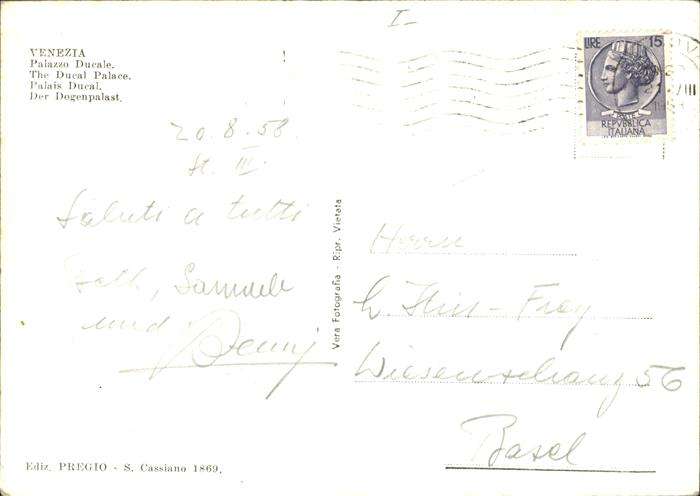 I-
VENEZIA
Palazzo Ducale.
The Ducal Palace.
Palais Ducal.
Der Dogenpalast.
LIRE 15
POSTE
REPVBBLICA
ITALIANA
VIII
20.8.58.
St. III.
Saluti a tutti
Samuele
und
Vera Fotografia - Ripr. Vietata
Herrn
-Frey
Wiesenschanz 56
Basel
Ediz. PREGIO - S. Cassiano 1869.